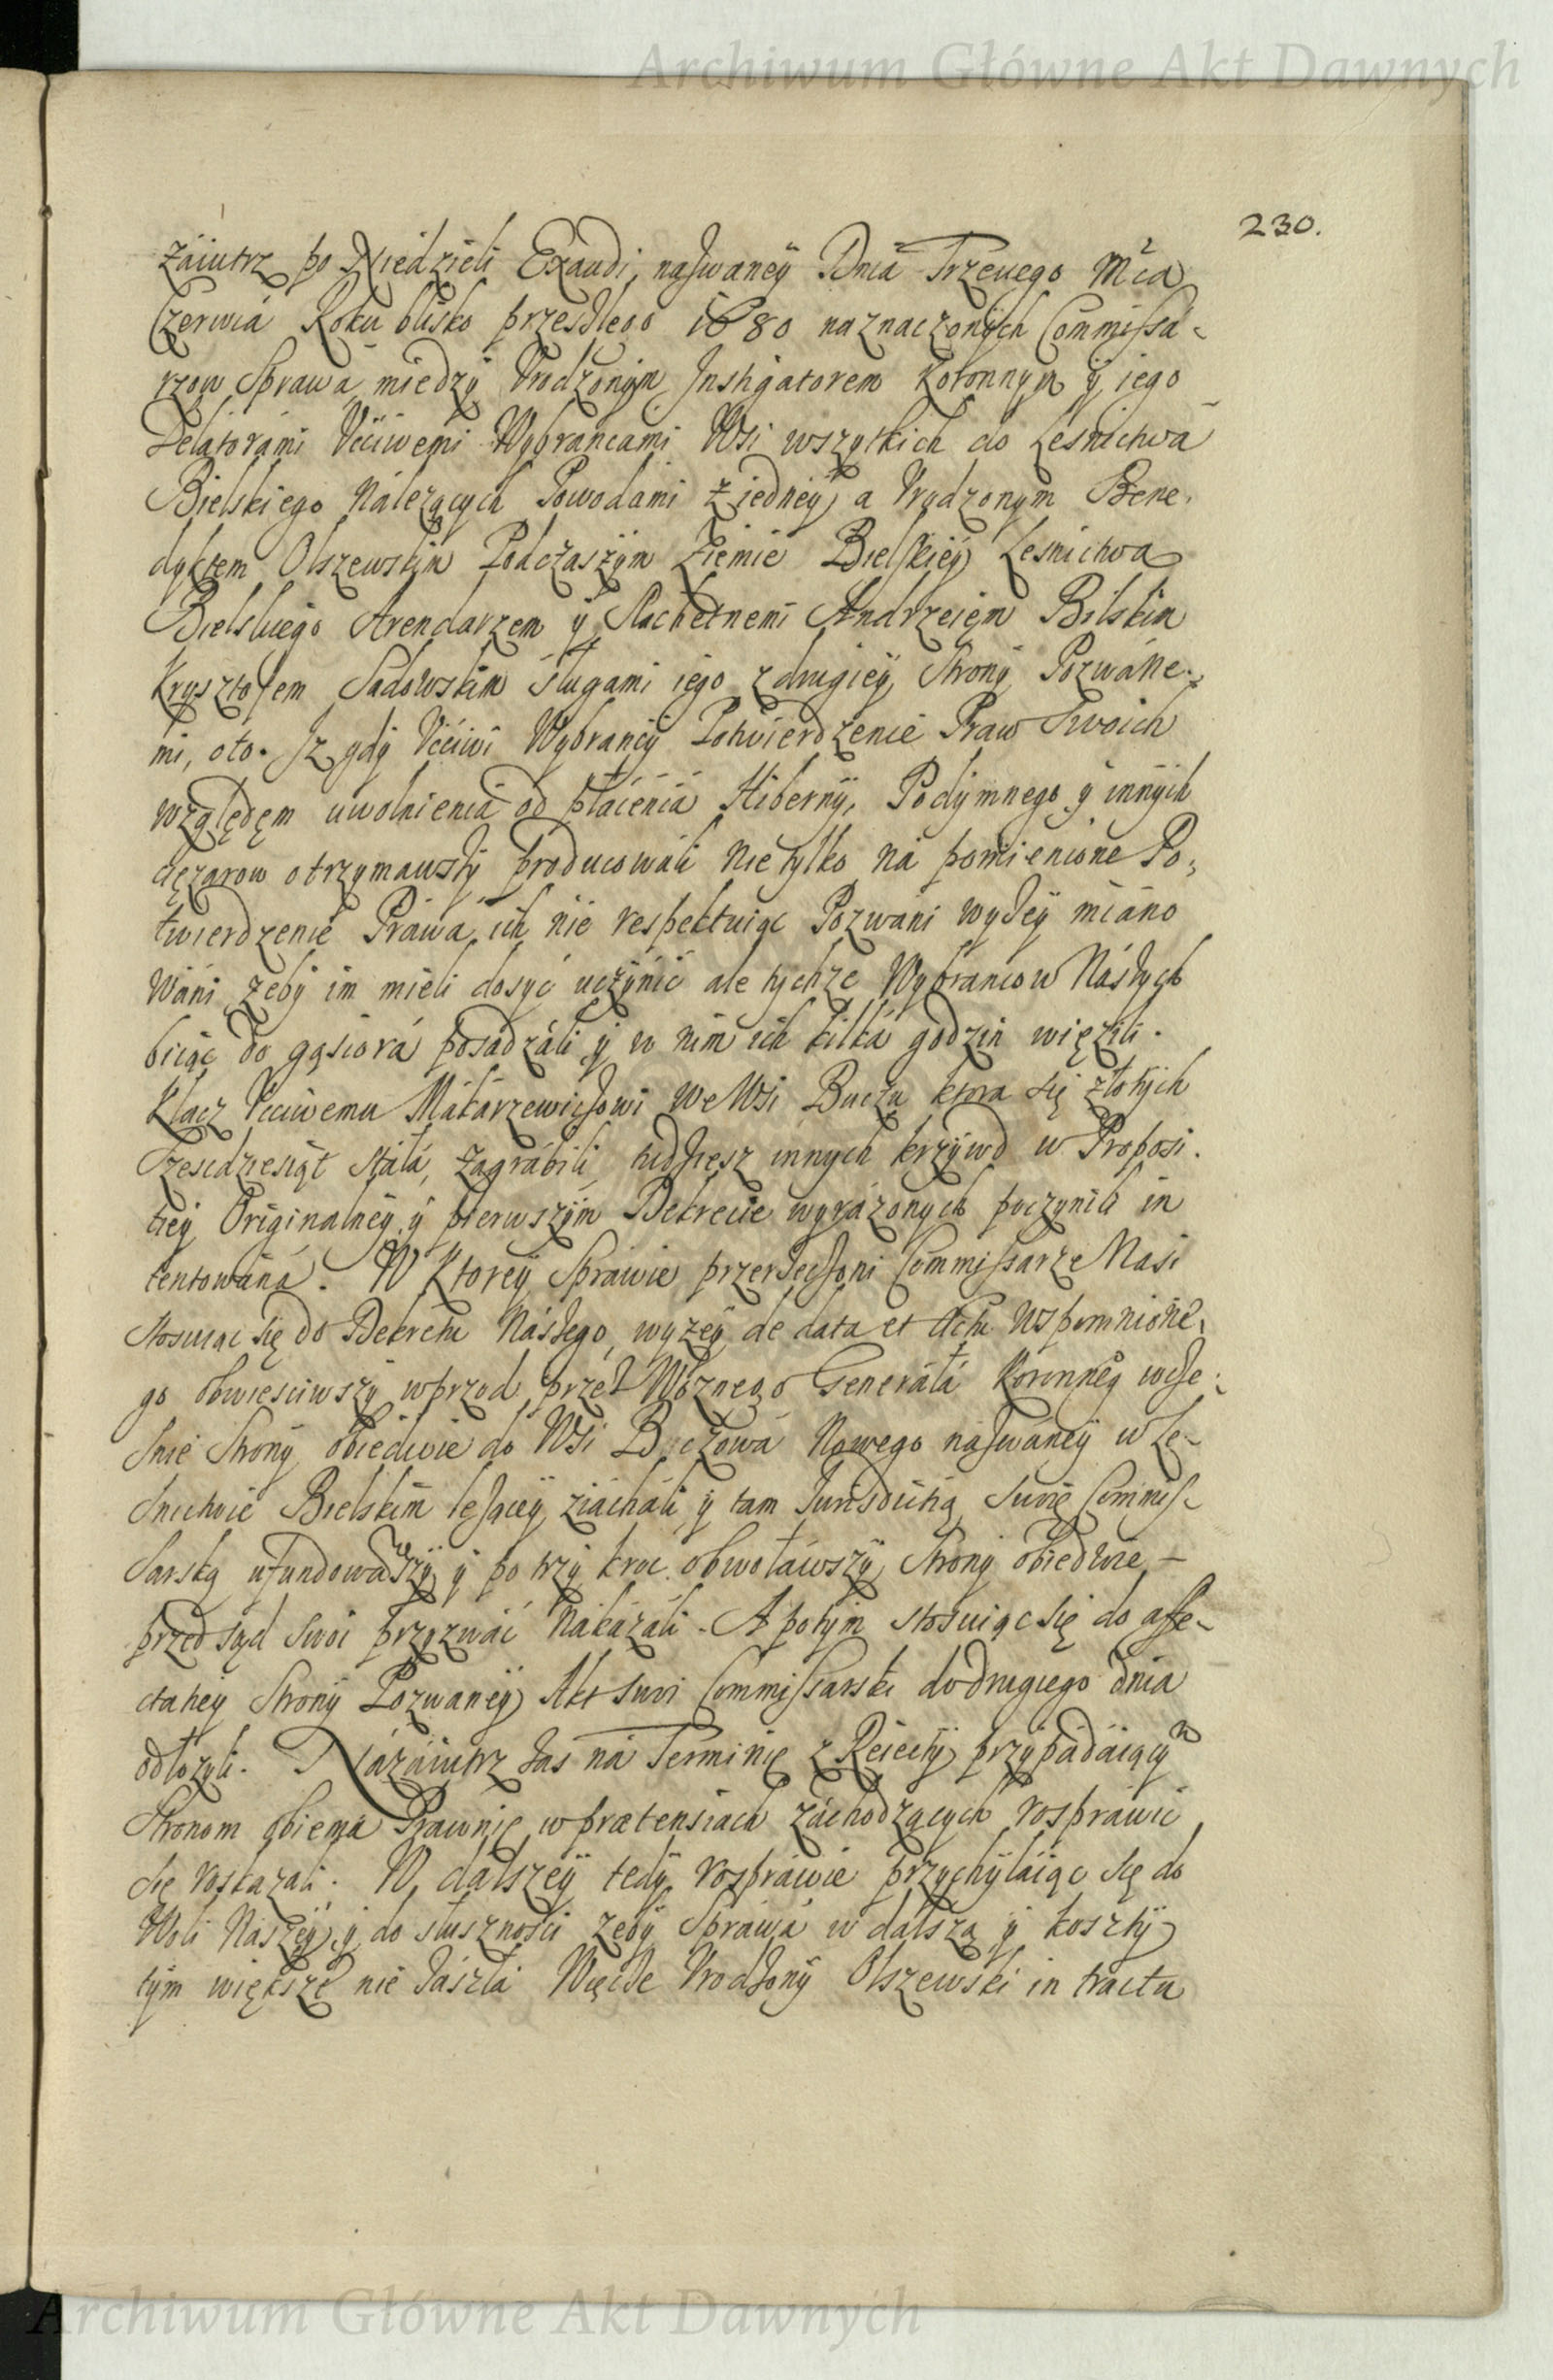 Archiwum Główne Akt Dawnych
230.
Zaiutrz po Niedzieli Exaudi, nazwaney Dnia Trzeciego Mca
Czerwca Roku blisko przeszłego 1680 naznaczonych Commissa-
rzow Sprawa między Urodzonym Instigatorem Koronnym y iego
Delatorami Ucciwemi Wybrancami Wsi wszytkich do Lesnictwa
Bielskiego Nalezących Powodami z iedney, a Urodzonym Bene-
dyktem Olszewskim Podczaszym Ziemie Bielskiey Lesnictwa
Bielskiego Arendarzem y Slachetnemi Andrzeiem Bilskim
Krysztofem Sadowskim sługami iego z drugiey Strony Pozwane-
mi, oto. Iz gdy Ucciwi Wybrancy Potwierdzenie Praw Swoich
względem uwolnienia od płacenia Hiberny, Podymnego y innych
cięzarow otrzymawszy producowali nie tylko na pomienione Po-
twierdzenie Prawa ich nie respektuiąc Pozwani wyzey miano
wani zeby im mieli dosyć uczynić ale tychze Wybrancow Naszych
biiąc do gąsiora posadzali y w nim ich kilka godzin więzili.
Klacz Ucciwemu Makarzewiczowi we Wsi Buczu ktora się złotych
Szescdziesiąt stała, zagrabili, tudziesz innych krzywd w Proposi-
tiey Originalney y pierwszym Dekrecie wyrazonych poczynili in
tentowana. W Ktorey Sprawie przerzeczoni Commissarze Nasi
stosuiąc się do Dekretu Naszego, wyzey de data et Actu wspomnione-
go obwiesciwszy wprzod przez Woznego Generała Koronneg wcze-
snie Strony obiedwie do Wsi Buczowa Nowego nazwaney w Le-
snictwie Bielskim lezącey ziachali y tam Iurisdictią swoię Commis-
sarską ufundowawszy y po trzy kroc obwoławszy Strony obiedwie -
przed sąd swoi przyzwać nakazali. A potym stosuiąc się do affe-
ctatiey Strony Pozwaney Akt swoi Commissarski do drugiego dnia
odłozyli. Nazaiutrz zas na Terminie z Reiecty przypadaiącym
Stronom obiema Prawnie w prætensiach zachodzących rosprawić
się roskazali. W dalszey tedy rosprawie przychylaiąc się do
Woli Naszey y do słusznosci zeby Sprawa w dalszą y koszty
tym większe nie zaszła Więcze Urodzony Olszewski in tractu
Archiwum Główne Akt Dawnych